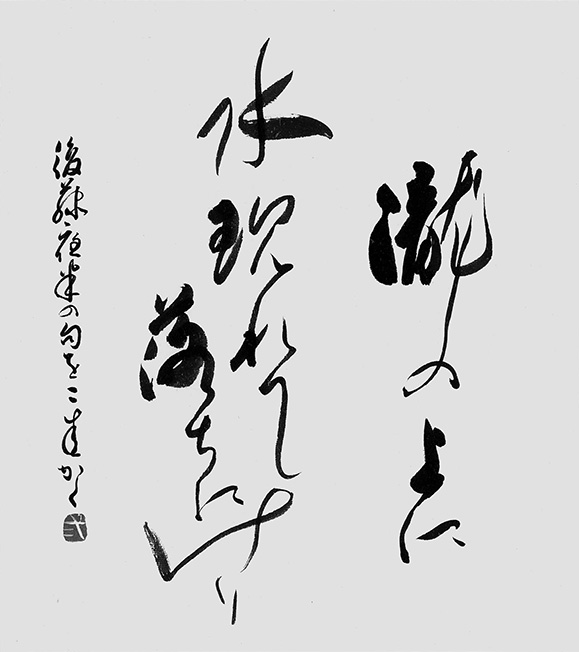 瀧の上に
水現れて
落ちにけり
後藤夜半の句を
かく